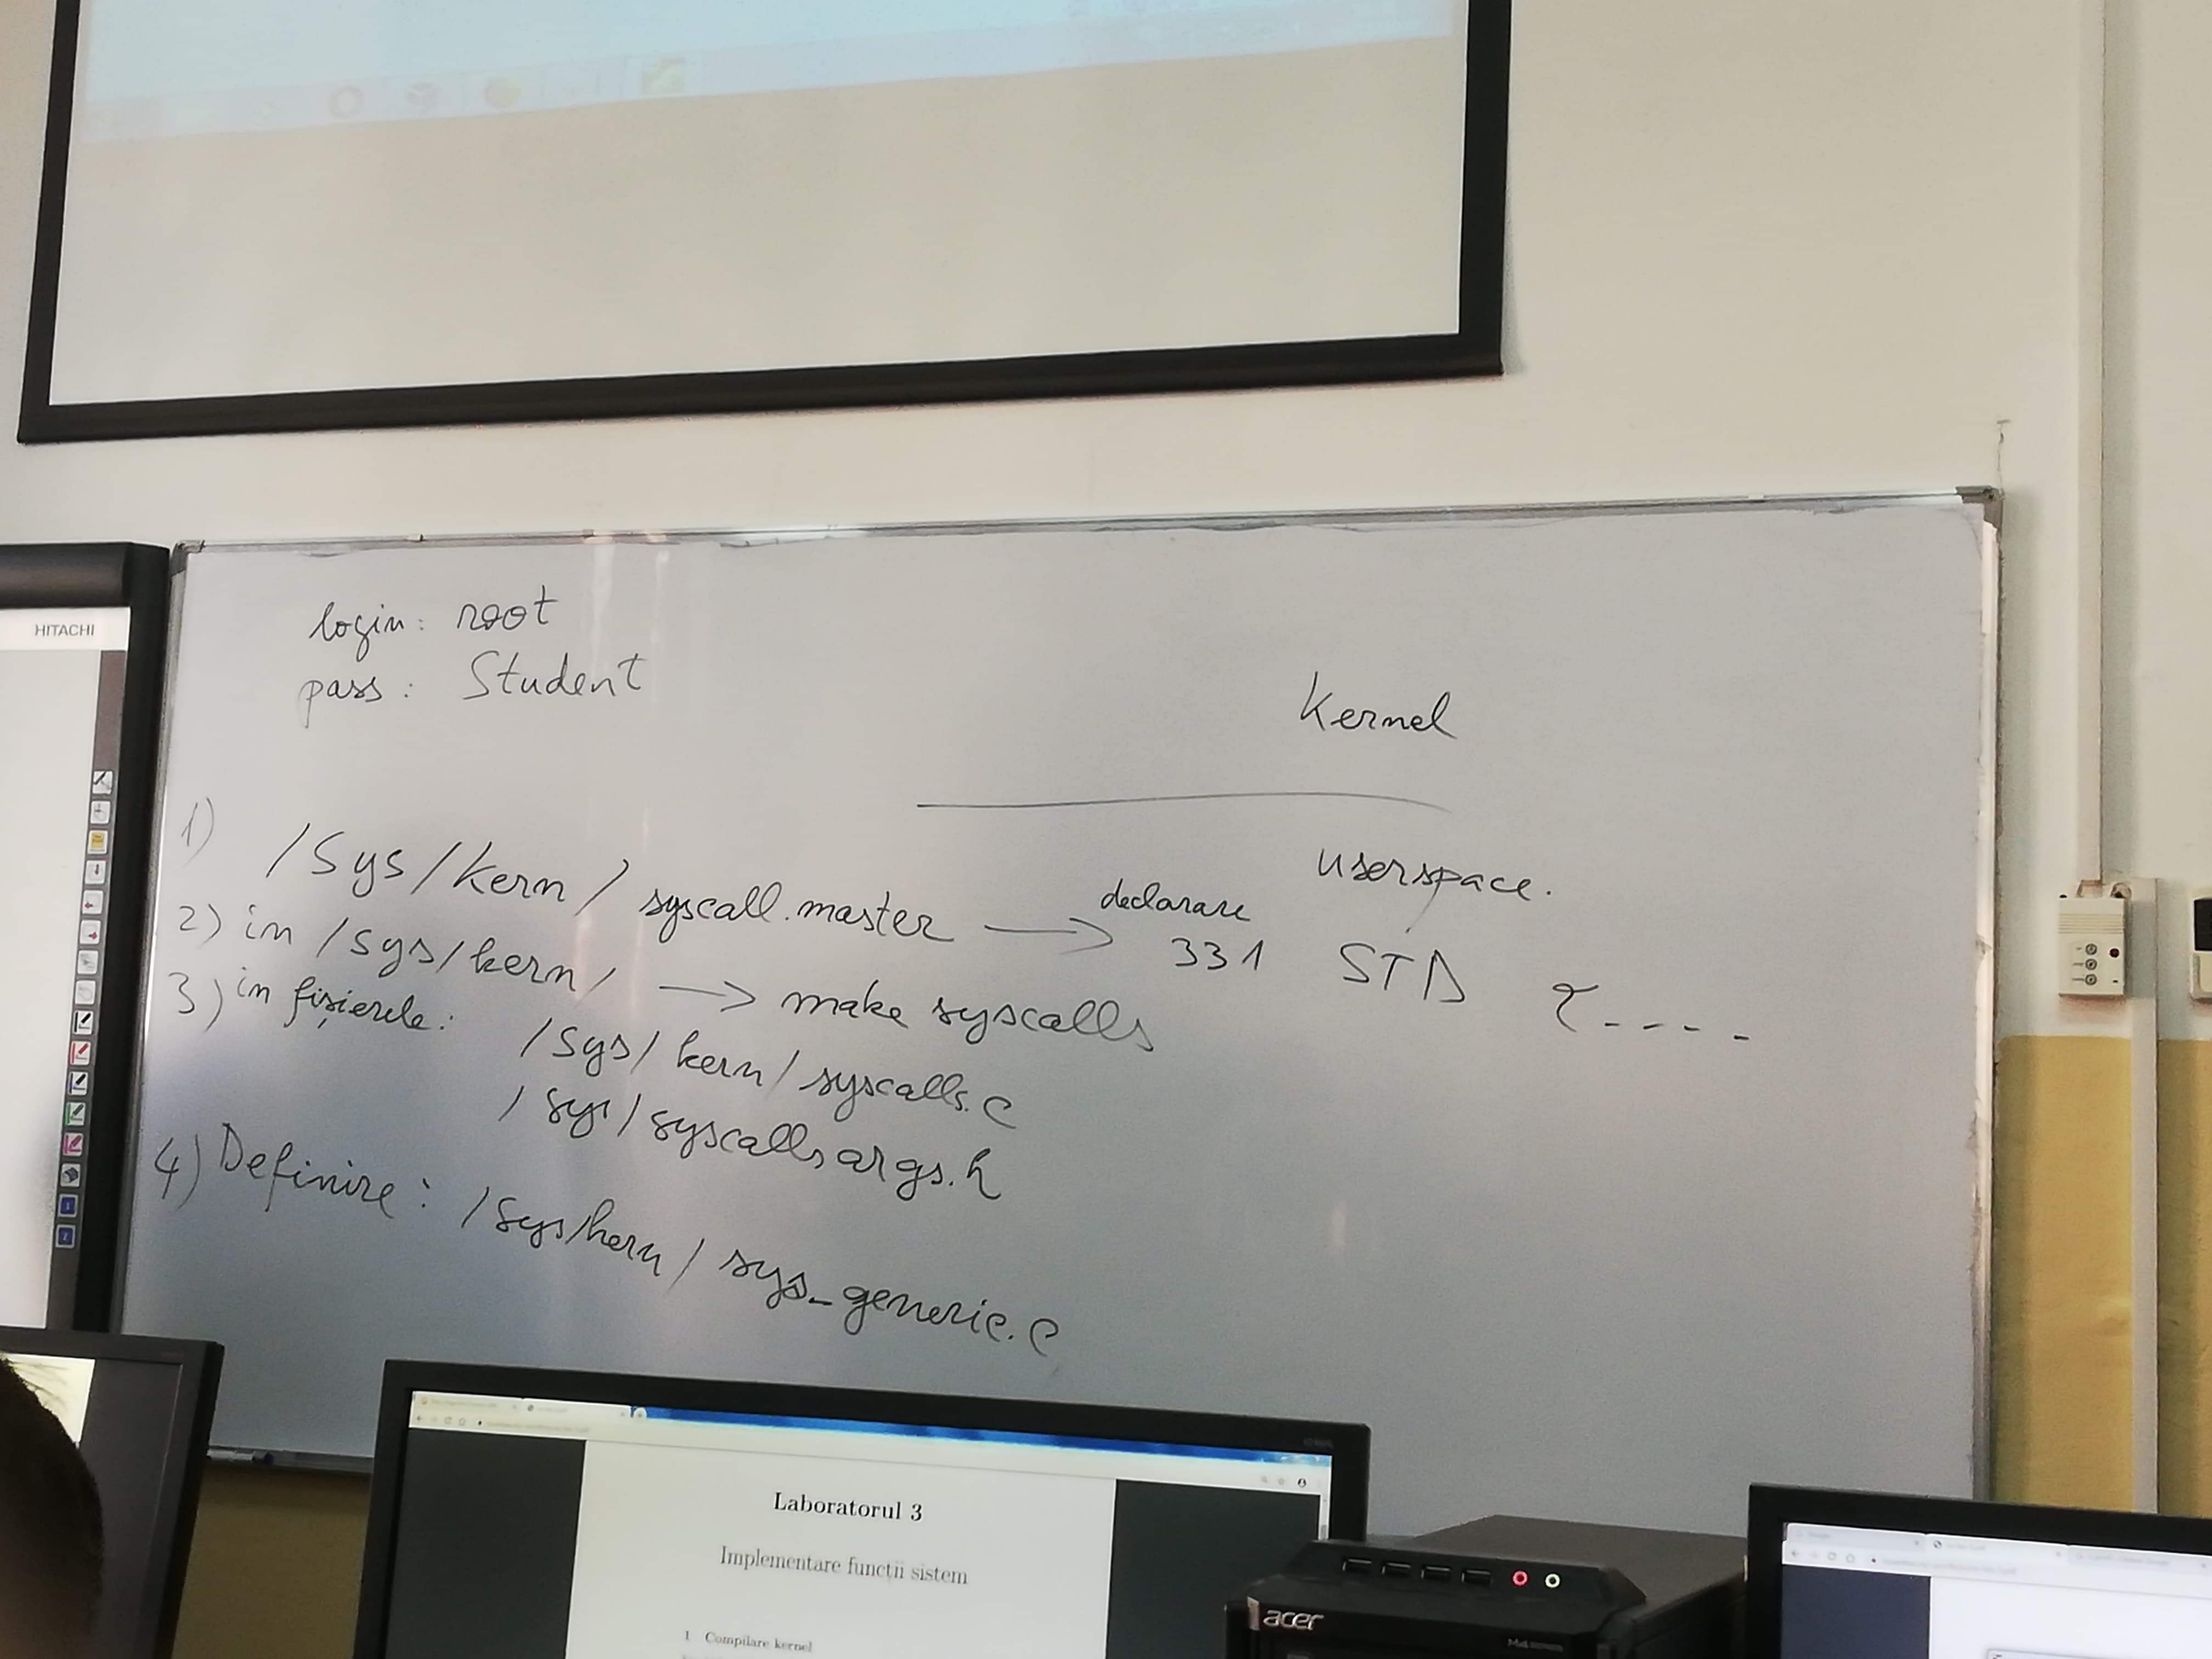 HITACHI
login: root
pass: Student
Kernel
userspace.
1) /sys/kern/syscall.master → declarare 331 STD {----
2) in /sys/kern/ → make syscalls
3) in fișierele: /sys/kern/syscalls.c
/sys/syscallsargs.h
4) Definire: /sys/kern/sys_generic.c
Laboratorul 3
Implementare funcții sistem
1 Compilare kernel
acer